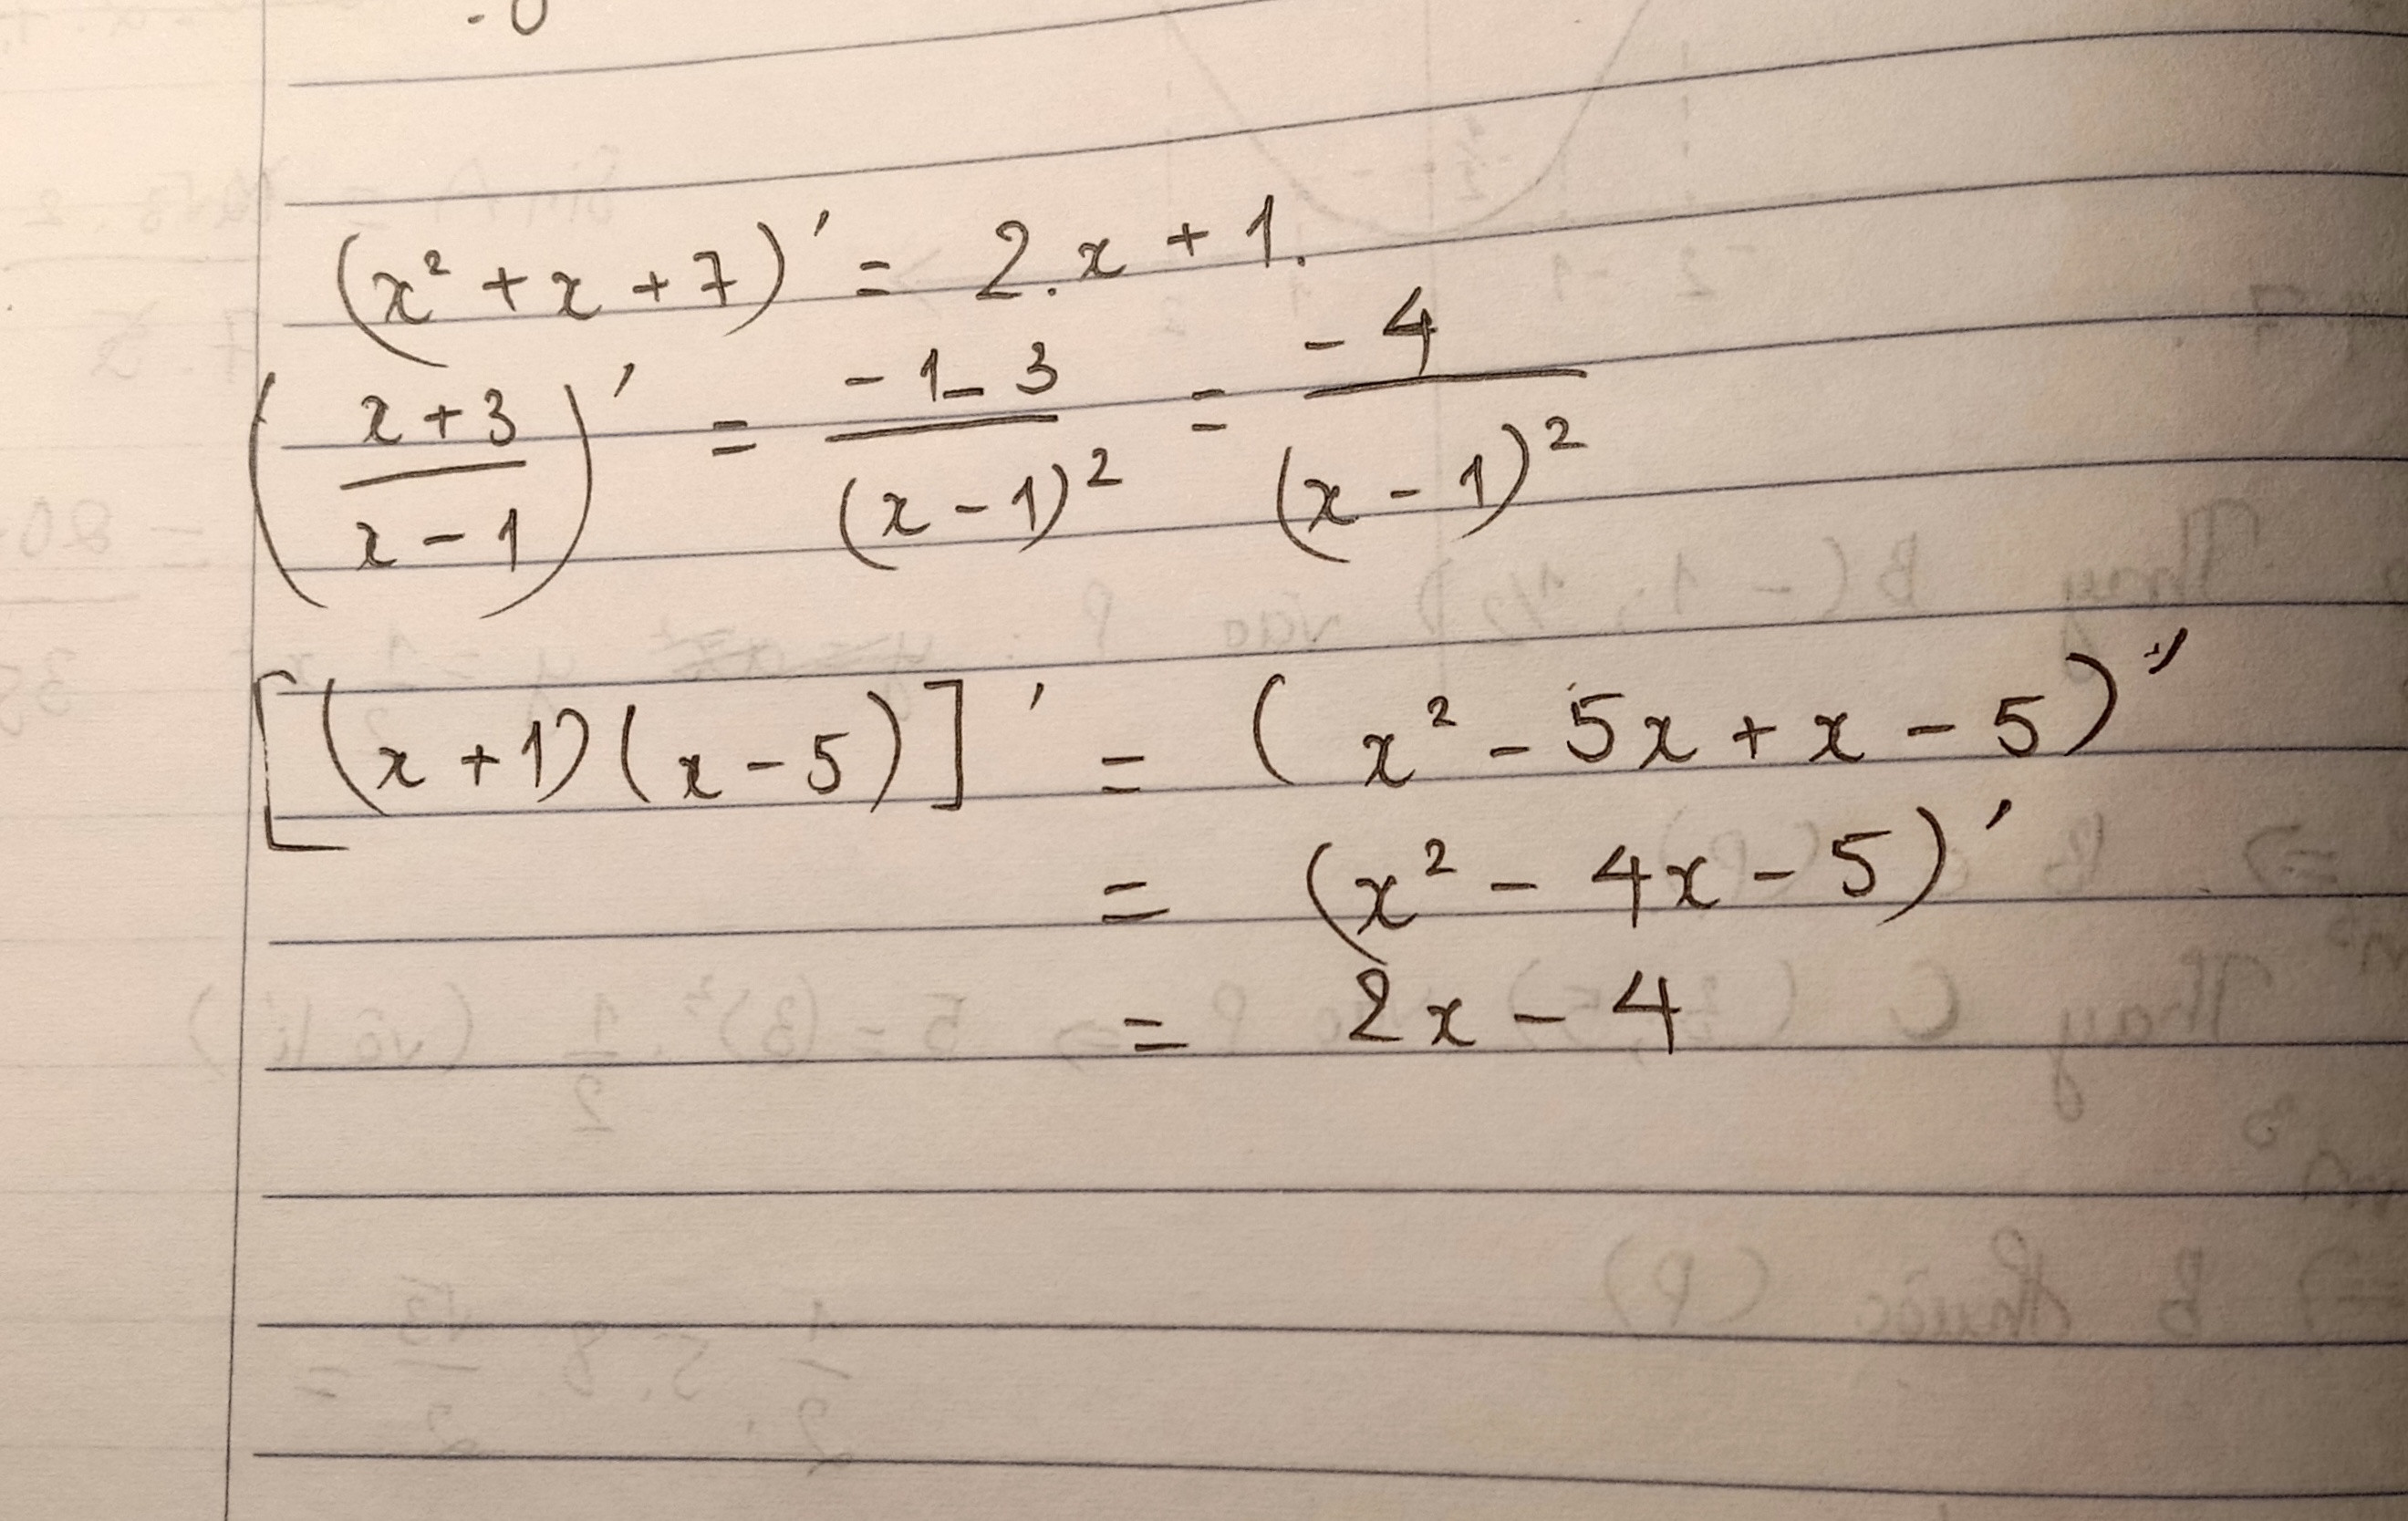 (x² + x + 7)' = 2.x + 1.
((x+3)/(x-1))' = (-1-3)/(x-1)² = (-4)/(x-1)²
[(x+1)(x-5)]' = (x² - 5x + x - 5)'
= (x² - 4x - 5)'
= 2x - 4